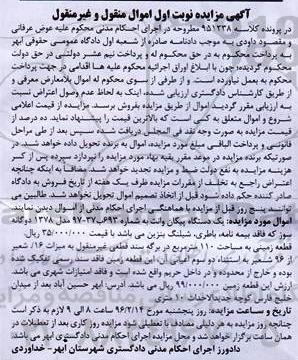 آگهی مزایده نوبت اول اموال منقول و غیرمنقول
در پرونده کلاسه ۹۵۱۲۳۸ مطروحه در اجرای احکام مدنی محکوم علیه عوض عرفانی
و مقصود داودی به موجب دادنامه صادره از شعبه اول دادگاه عمومی حقوقی ابهر
به پرداخت محکوم به در حق محکوم له و پرداخت نیم عشر دولتی در حق دولت
محکوم گردیده؛ چون با ابلاغ اوراق اجرائیه محکوم علیه ها اقدامی در جهت پرداخت
محکوم به بعمل نیاورده است. و از طرفی از سوی محکوم له اموال بلامعارض معرفی و
از طریق کارشناس دادگستری ارزیابی شده، اینک به لحاظ عدم وصول اعتراض نسبت
به ارزیابی مقرر گردید، اموال از طریق مزایده بفروش برسد. مزایده از قیمت اعلامی
شروع و اموال متعلق به کسی است که بالاترین قیمت را پیشنهاد نماید. ده درصد از
قیمت مزایده به صورت وجه نقد فی المجلس دریافت شده سپس بعد از طی مراحل
قانونی و پرداخت الباقی مبلغ مورد مزایده، اموال به برنده تحویل داده خواهد شد. در
صورتیکه برنده مزایده در موعد مقرر بقیه بهاء مورد مزایده را نپردازد سپرده پس از کسر
هزینه مزایده به نفع دولت ضبط و مزایده تجدید خواهد شد. مضافا به اینکه چنانچه
اعتراض راجع به تخلف از مقررات مزایده ظرف یک هفته از تاریخ فروش به دادگاه
صادر کننده حکم داده شود قبل از اتخاذ تصمیم اموال تحویل نخواهد شد. طالبین می
توانند پنج روز قبل از مزایده با هماهنگی اجرای احکام مدنی از اموال دیدن نمایند.
اموال مورد مزایده: یک دستگاه پیکان وانت به شماره ۶۹۳
سوز که فاقد بیمه نامه، باطری، شیلنگ بنزین می باشد با قیمت ۳۵/۰۰۰/۰۰۰ ریال
قطعه زمینی به مساحت ۱۱۰ مترمربع در برگه سند قطعی غیرمنقول به میزان ۱۶/ شعیر
از ۹۶ شعیر به استثناء دو سوم اعیان
بوده و خارج از محدوده و در داخل حریم واقع شده است و فاقد امتیازات شهری می باشد.
ارزش این قطعه زمین ۹۹/۰۰۰/۰۰۰ ریال می باشد. آدرس: ابهر، حسین آباد بعد از میدان
خلیج فارس کوچه جدیدالاحداث
تاریخ و ساعت مزایده: روز پنجشنبه مورخ ۹۶/۲/۱۴ ساعت ۸ الی ۹ لازم به ذکر است
چنانچه روز مزایده به هر دلیلی مصادف با تعطیلی شود مزایده روز کاری بعد از تعطیلات در
همان ساعت برگزار خواهد شد و محل مزایده دفتر اجرای احکام مدنی ابهر می باشد.
دادورز اجرای احکام مدنی دادگستری شهرستان ابهر- خداوردی